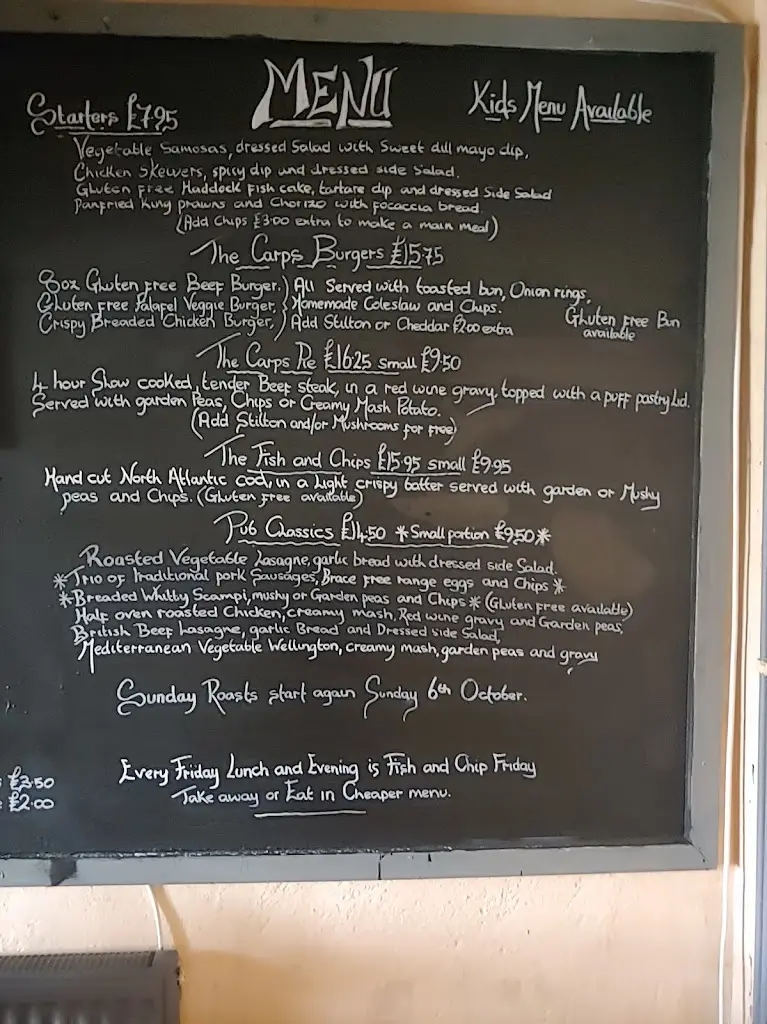 MENU
Starters £7.95
Kids Menu Available
Vegetable Samosas, dressed Salad with Sweet dill mayo dip,
Chicken Skewers, spicy dip and dressed side Salad.
Gluten Free Haddock fish cake, tartare dip and dressed Side Salad
Panfried King prawns and Chorizo with focaccia bread
(Add Chips £3.00 extra to make a main meal)
The Carps Burgers £15.75
8oz Gluten free Beef Burger.) All Served with toasted bun, Onion rings,
Gluten Free Falafel Veggie Burger, Homemade Coleslaw and Chips.
Crispy Breaded Chicken Burger, Add Stilton or Cheddar £2.00 extra
Gluten Free Bun
available
The Carps Pie £16.25 small £9.50
4 hour Slow cooked, tender Beef steak, in a red wine gravy, topped with a puff pastry Lid.
Served with garden Peas, Chips or Creamy Mash Potato.
(Add Stilton and/or Mushrooms for free)
The Fish and Chips £15.95 small £9.95
Hand cut North Atlantic Cod, in a light crispy batter served with garden or Mushy
peas and Chips. (Gluten free available)
Pub Classics £14.50 *Small portion £9.50*
Roasted Vegetable Lasagne, garlic bread with dressed side Salad.
*Trio of Traditional pork Sausages, Brace free range eggs and Chips *
*Breaded Whitby Scampi, mushy or Garden peas and Chips * (Gluten free available)
Half oven roasted Chicken, creamy mash, Red wine gravy and Garden peas,
British Beef Lasagne, garlic Bread and Dressed side Salad,
Mediterranean Vegetable Wellington, creamy mash, garden peas and gravy
Sunday Roasts start again Sunday 6th October.
Every Friday Lunch and Evening is Fish and Chip Friday
Take away or Eat in Cheaper menu.
£3.50
£2.00